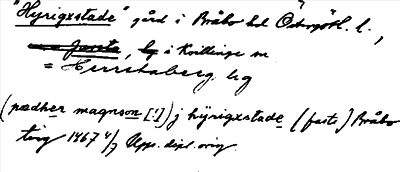 "Hyrigxstade" gård i Bråbo hd Östergötl. l.,
by i Kvillinge sn
= Herrstaberg. hg
(pædher magnson [!]) j hÿrigxstade (faste) Bråbo
ting 1467 4/7 Upps. dipl. orig.